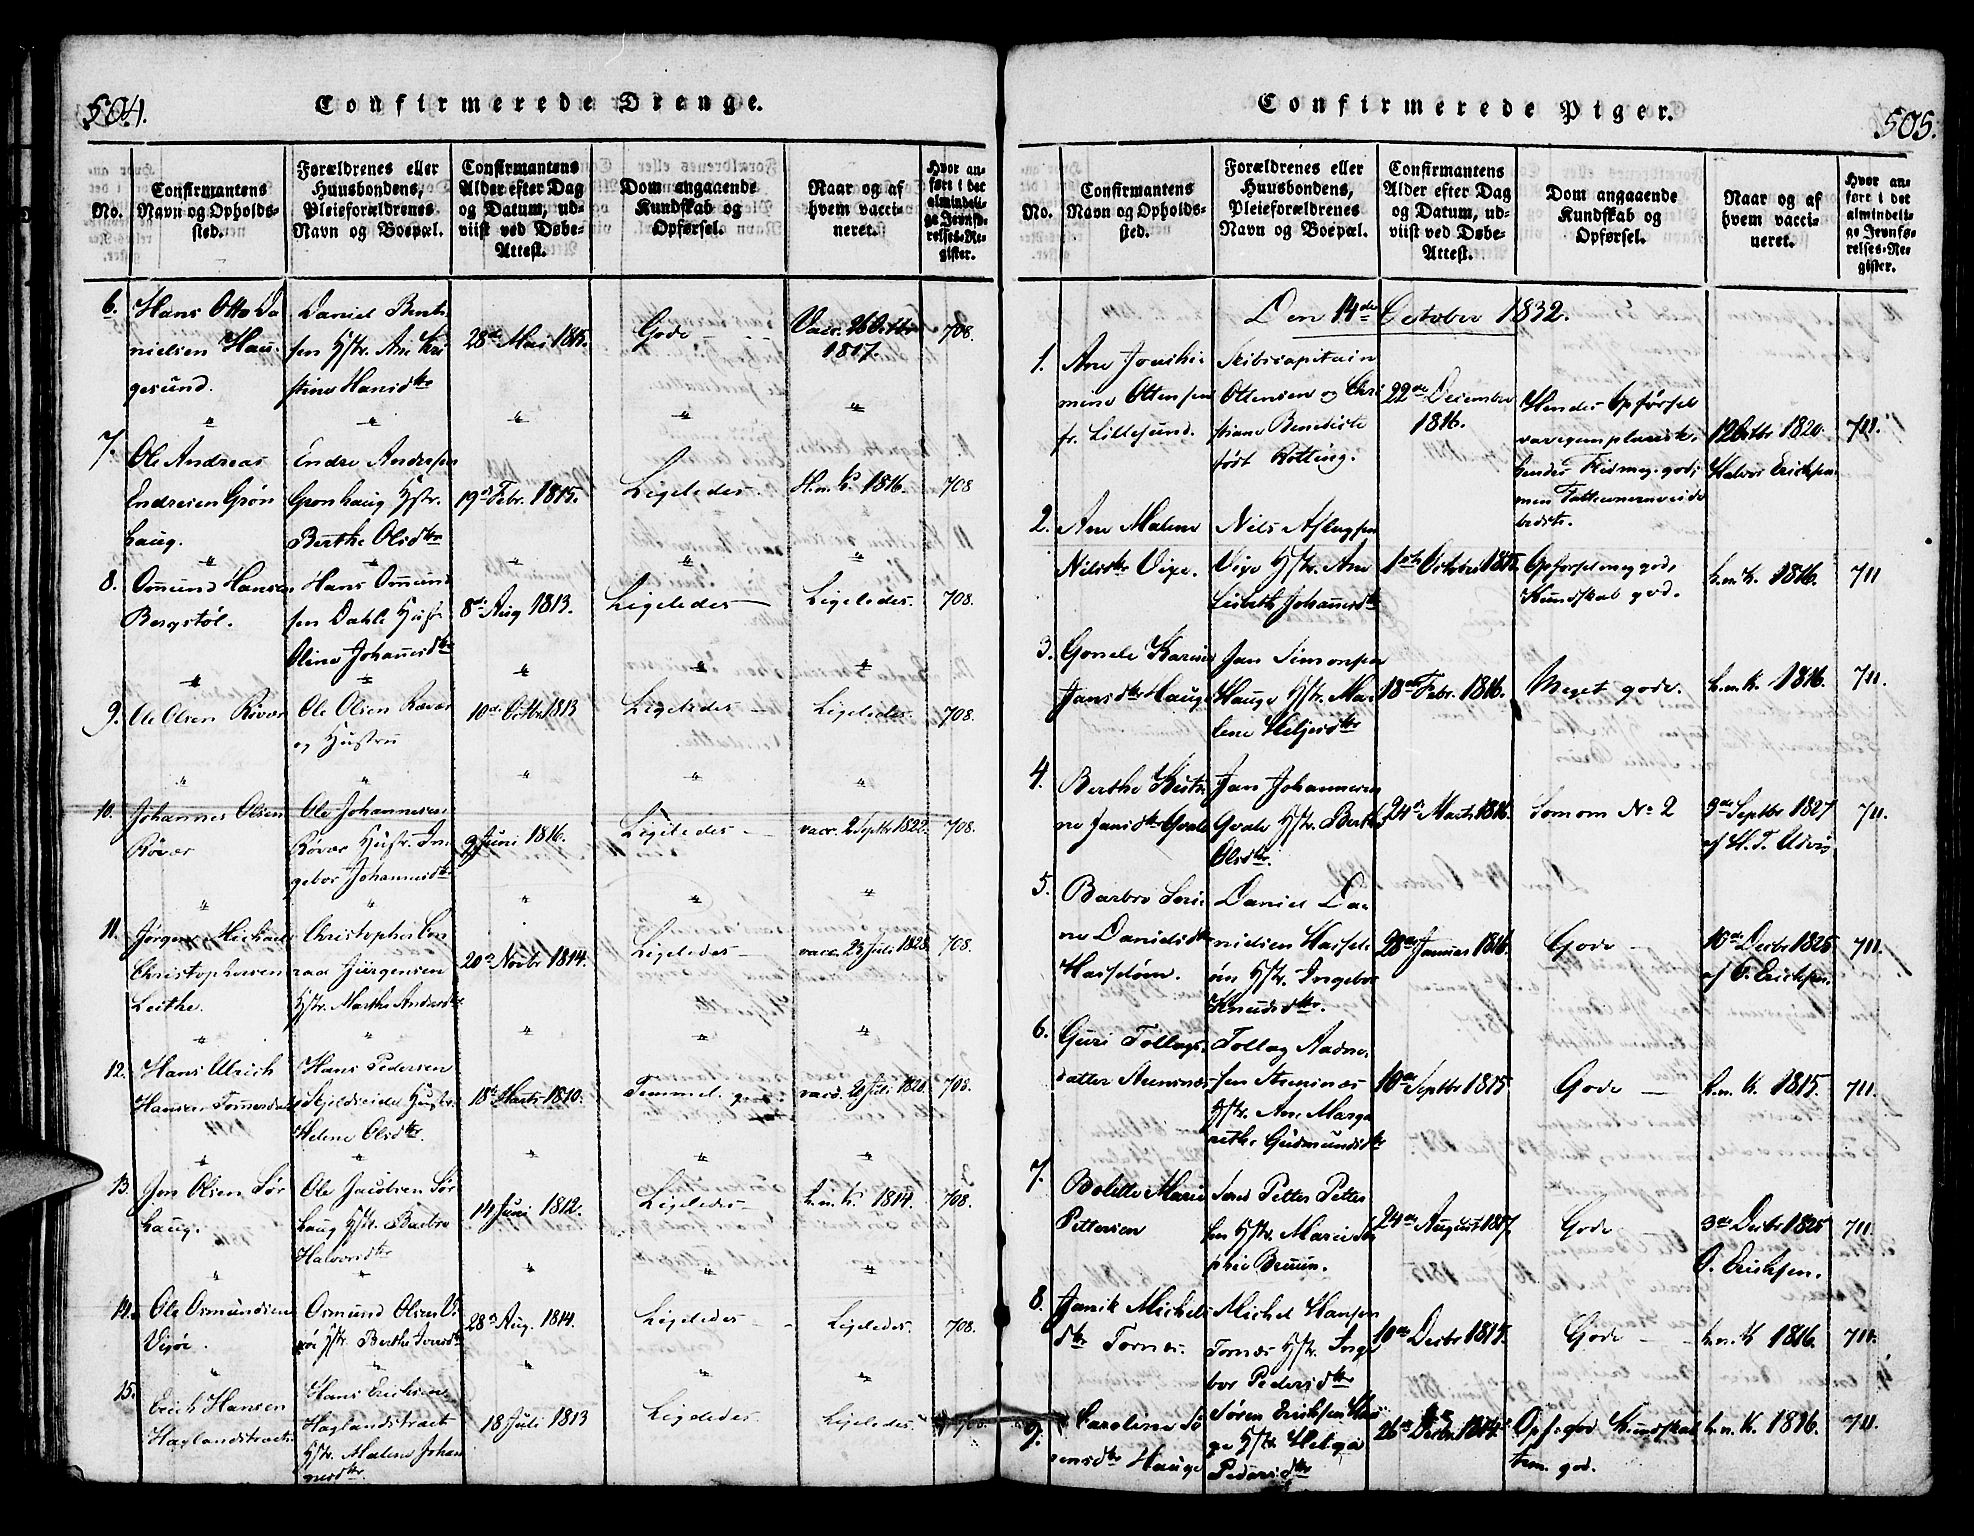 504.
Confirmerede Drenge.
No.
Confirmantens
Navn og Opholds-
sted.
Forældrenes eller
Huusbondens,
Pleieforældrenes
Navn og Boepæl.
Confirmantens
Alder efter Dag
og Datum, ud-
viist ved Døbe-
Attest.
Dom angaaende
Kundskab og
Opførsel.
Naar og af
hvem vacci-
neret.
Hvor an-
ført i det
almindeli-
ge Jevnfø-
relses-Re-
gister.
6.
Hans Otto Da
nielsen Hau-
gesund.
Daniel Bent
sen Hstr. Ane Kri
stine Hansdtr
28de Mai 1815.
Gode
Vacc. 26 Octbr
1817.
708.
7.
Ole Andreas
Endresen Grön
haug.
Endre Andersen
Grönhaug Hstr.
Berthe Olsdtr
19de Febr. 1815.
Ligeledes
H. n. K. 1816.
708
8.
Omund Hansen
Bergstöl.
Hans Omund
sen Dahle Husr
Oline Johannesdtr
8de Aug 1813.
Ligeledes
Ligeledes.
708.
9.
Ole Olsen Rövær
Ole Olsen Rövær
og Hustru
10de Octbr 1813
Ligeledes
Ligeledes.
708.
10.
Johannes Olsen
Rövær
Ole Johannesen
Rövær Hustr. In
gebor Johannesdtr
9 Juni 1816.
Ligeledes
vacc. 2 Septbr 1822.
708.
11.
Jörgen Michael
Christophersen
Leithe.
Christopher Con
rad Jürgensen
Hstr. Marthe Andersdtr
20de Novbr 1814.
Ligeledes
vacc. 23 Juli 1828.
708.
12.
Hans Ulrich
Hansen
Hans Pedersen
Skjeldreidet Hustr.
Helene Olsdtr.
18de Marts 1810.
Temmel. gode
vacc. 2 Juli 1820.
708.
13.
Jon Olsen Sör
haug.
Ole Jacobsen Sör
haug Hstr. Barbro
Halvorsdtr
14 Juni 1812.
Ligeledes
h. n. K. 1814.
708.
14.
Ole Osmundsen
Vi
Osmund Olsen Vi
Hstr. Berthe
28de Aug. 1814.
Ligeledes
Ligeledes.
708.
15.
Erich Hansen
Haglandstract
Hans Erichsen
Haglandstract
Hstr. Malene Johan
nesdtr.
18 Juli 1813
Ligeledes
Ligeledes
505.
Confirmerede Piger.
No.
Confirmantens
Navn og Opholds-
sted.
Forældrenes eller
Huusbondens,
Pleieforældrenes
Navn og Boepæl.
Confirmantens
Alder efter Dag
og Datum, ud-
viist ved Døbe-
Attest.
Dom angaaende
Kundskab og
Opførsel.
Naar og af
hvem vacci-
neret.
Hvor an-
ført i det
almindeli-
ge Jevnfø-
relses-Re-
gister.
Den 14de October 1832.
1.
Ane Joachi
mine Ottensen
fr. Lillesund.
Skibscapitain
Ottensen og Chri
stiane Benedicte
født Rotting.
22de December
1816.
Hendes Opførsel
var exemplarisk,
hendes Flid meg. god;
men
bedste.
12 Octbr 1820.
Halvor Erichsen
711.
2.
Ane Malene
Nilsdtr Vixe.
Nils Aslagsen
Vixe Hstr. Ane
Lisbeth Johannesdtr
1ste October 1815.
Opførsel meg. god,
Kundskab god.
h. n. K. 1816.
711
3.
Gonele Karine
Jansdtr Hauge
Jan Simonsen
Hauge Hstr. Ma
lene Heljesdtr
18de Febr. 1816.
Meget gode.
h. n. K. 1816.
711.
4.
Berthe Kisti
ne Jansdtr Qvale
Jan Johannesen
Qvale Hstr. Berthe
Olsdtr.
24de Marts 1816.
Som om No 2
9de Septbr 1827
af H. T. Udvig
711.
5.
Barbro Seri
ne Danielsdtr
Hasseløen.
Daniel Da
nielsen Hassel
öen Hstr. Ingebor
Knudsdtr.
28de Januar 1816.
Gode
10de Decbr 1825
af O. Erichsen.
711.
6.
Guri Tollags
datter
Tollag Aadne
sen
Hstr. Ane Marga
rethe Gudmundsdtr
10de Septbr 1815
Gode
h. n. K. 1815.
711.
7.
Bolette Marie
Pettersen
Petter Petter
sen Hstr. Marie So
phie Bruun.
24de August 1817.
Gode
3de Decbr 1825
O. Erichsen.
711.
8.
Janik Michels
dtr Tornæs.
Michel Hansen
Tornæs Hstr. Inge
bor Pedersdtr
10de Decbr 1815.
Gode
h. n. K 1816.
711.
9.
Caroline Sö
rensdtr Hauge
Søren Erichsen Hau
ge Hstr. Helga
Pedersdtr
26de Decbr
Opf. god Kundskab
tem. god.
h. n. K. 1816.
711.